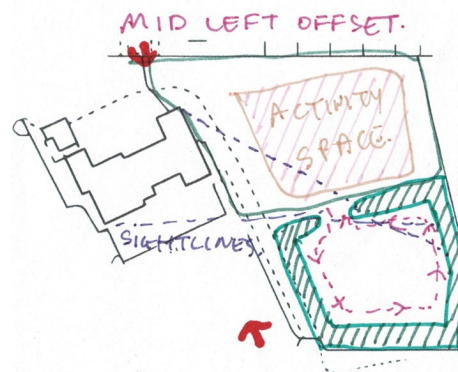 MID LEFT OFFSET.
ACTIVITY
SPACE.
SIGHTLINES